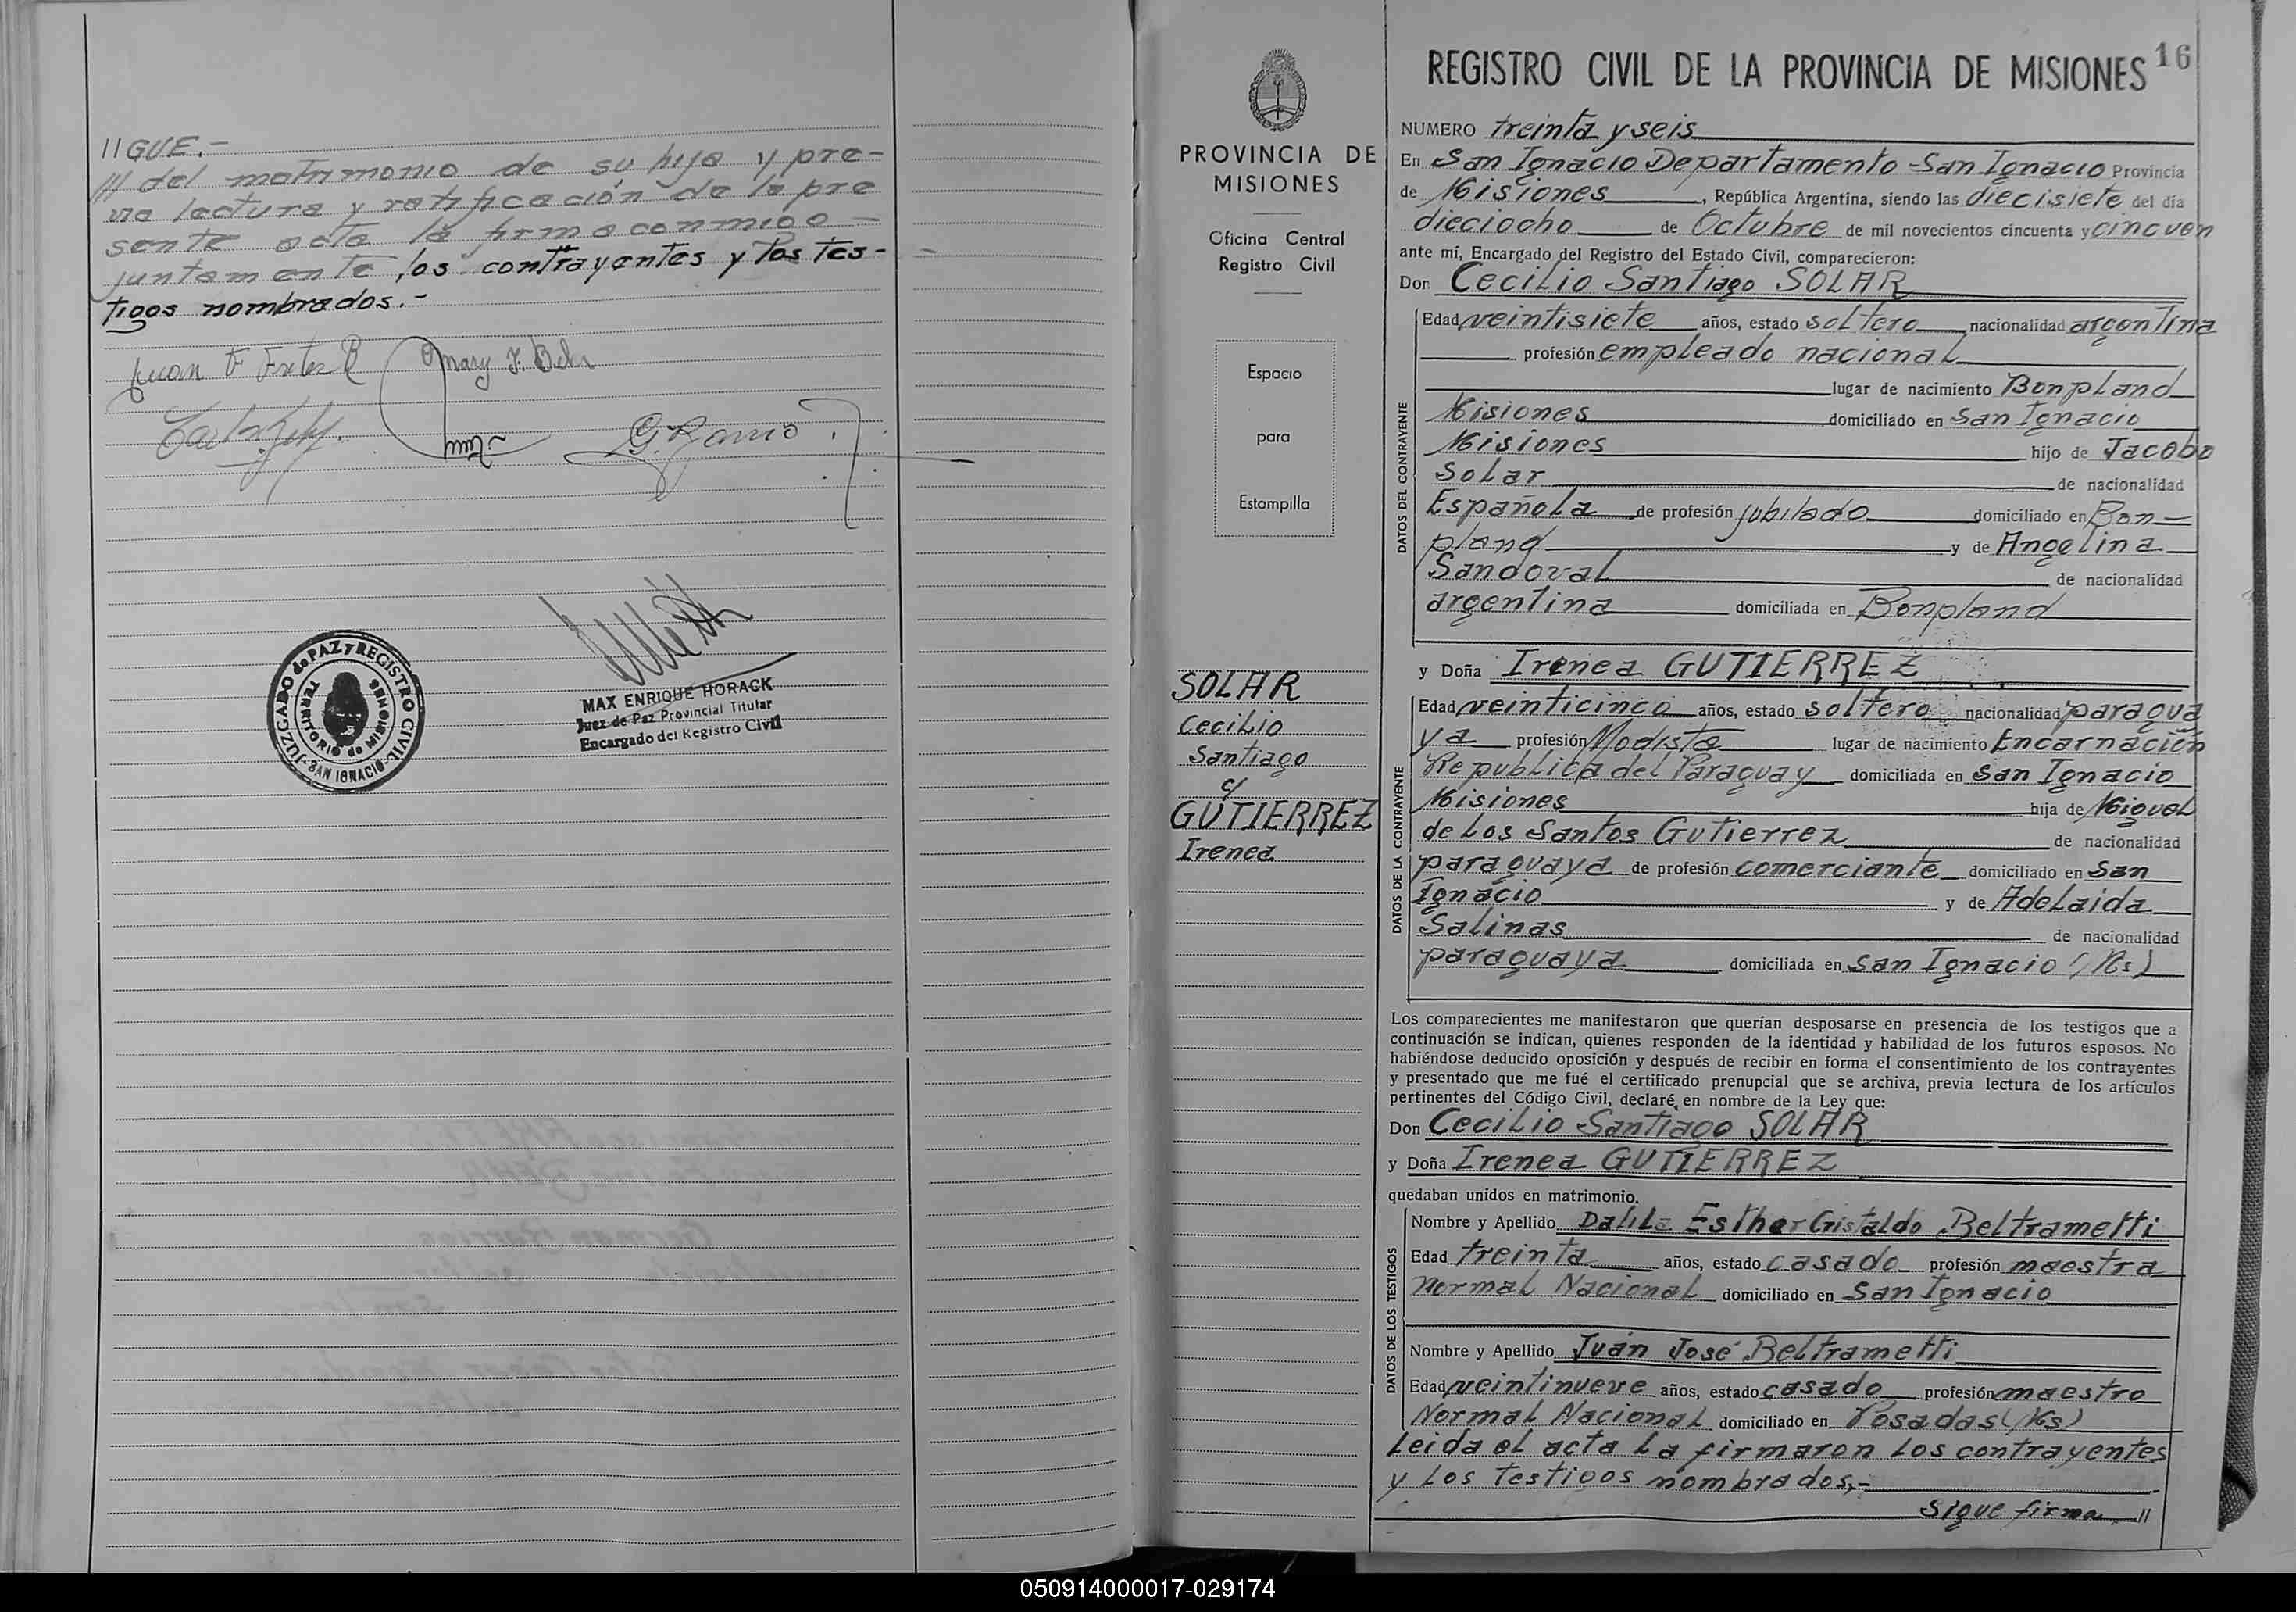 IIGUE.-
/// del matrimonio de su hija y pre-
via lectura y ratificación de la pre
sente acta la firma conmigo-
juntamente, los contrayentes y los tes-
tigos nombrados.-
Juan F
Mary F. Behr
JUZGADO de PAZ y REGISTRO CIVIL
TERRITORIO de MISIONES
-SAN IGNACIO-
MAX ENRIQUE HORACK
Juez de Paz Provincial Titular
Encargado del Registro Civil
PROVINCIA DE
MISIONES
Oficina Central
Registro Civil
Espacio
para
Estampilla
SOLAR
Cecilio
Santiago
c/
GUTIERREZ
Irenea
REGISTRO CIVIL DE LA PROVINCIA DE MISIONES 16
NUMERO treinta y seis
En San Ignacio Departamento San Ignacio Provincia
de Misiones, República Argentina, siendo las diecisiete del día
dieciocho de Octubre de mil novecientos cincuenta y cincuen
ante mí, Encargado del Registro del Estado Civil, comparecieron:
Don Cecilio Santiago SOLAR
DATOS DEL CONTRAYENTE
Edad veintisiete años, estado soltero nacionalidad argentina
profesión empleado nacional
lugar de nacimiento Bonpland
Misiones domiciliado en San Ignacio
Misiones hijo de Jacobo
Solar de nacionalidad
Española de profesión jubilado domiciliado en Bon-
pland y de Angelina
Sandoval de nacionalidad
argentina domiciliada en Bonpland
y Doña Irenea GUTIERREZ
DATOS DE LA CONTRAYENTE
Edad veinticinco años, estado soltero nacionalidad paragua
ya profesión Modista lugar de nacimiento Encarnación
Republica del Paraguay domiciliada en San Ignacio
Misiones hija de Miguel
de Los Santos Gutierrez de nacionalidad
paraguaya de profesión comerciante domiciliado en San
Ignacio y de Adelaida
Salinas de nacionalidad
paraguaya domiciliada en San Ignacio (Ms)
Los comparecientes me manifestaron que querían desposarse en presencia de los testigos que a
continuación se indican, quienes responden de la identidad y habilidad de los futuros esposos. No
habiéndose deducido oposición y después de recibir en forma el consentimiento de los contrayentes
y presentado que me fué el certificado prenupcial que se archiva, previa lectura de los artículos
pertinentes del Código Civil, declaré, en nombre de la Ley que:
Don Cecilio Santiago SOLAR
y Doña Irenea GUTIERREZ
quedaban unidos en matrimonio.
DATOS DE LOS TESTIGOS
Nombre y Apellido Dalila Esther Gistaldo Beltrametti
Edad treinta años, estado casado profesión maestra
Normal Nacional domiciliado en San Ignacio
Nombre y Apellido Juan José Beltrametti
Edad veintinueve años, estado casado profesión maestro
Normal Nacional domiciliado en Posadas (Ms)
Leida el acta la firmaron los contrayentes
y los testigos nombrados,-
Sigue firma //
050914000017-029174